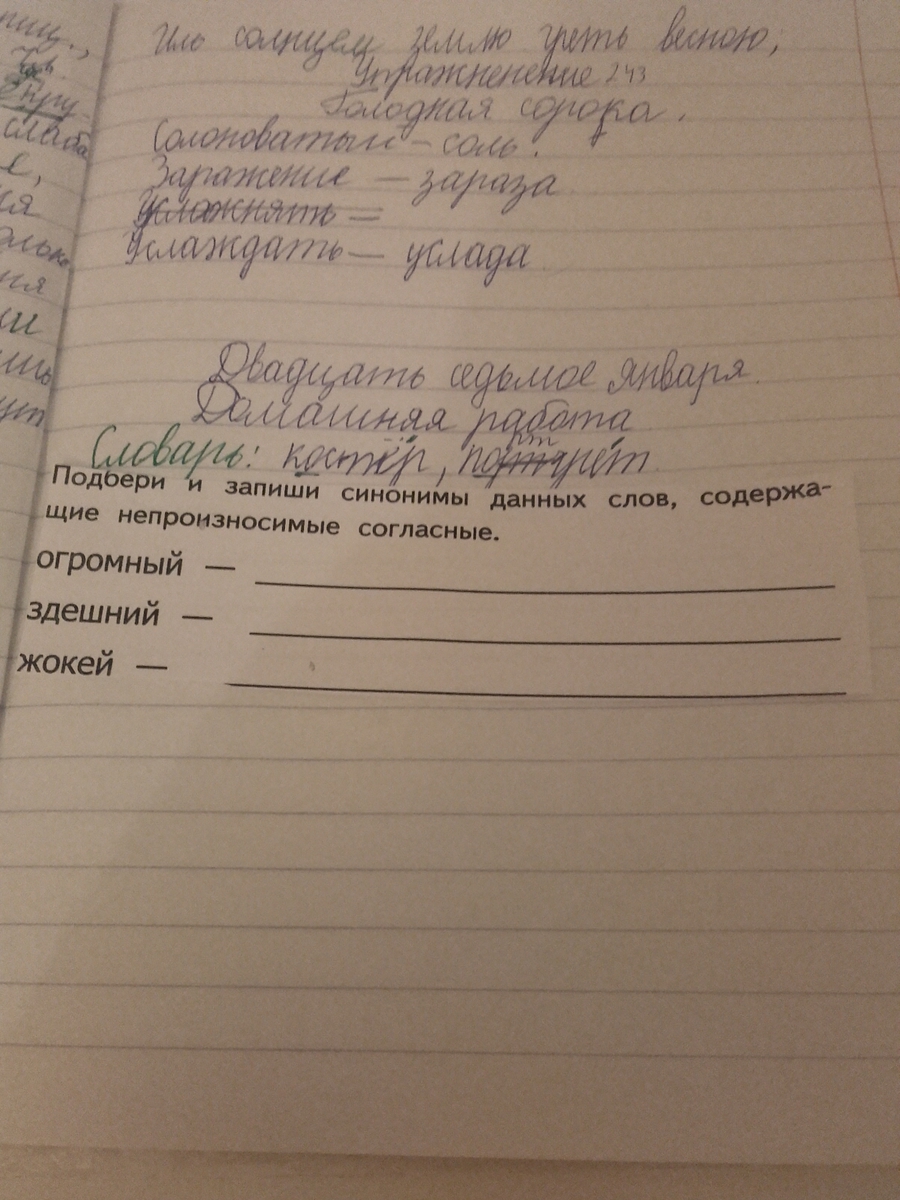 Иль солнцем землю греть весною,
Упражненение 243
Голодная сорока.
Солоноватый - соль.
Заражение - зараза
Усложнять =
Услаждать - услада
Двадцать седьмое января.
Домашняя работа
Словарь: костёр, портрет
Подбери и запиши синонимы данных слов, содержа-
щие непроизносимые согласные.
огромный —
здешний —
жокей —